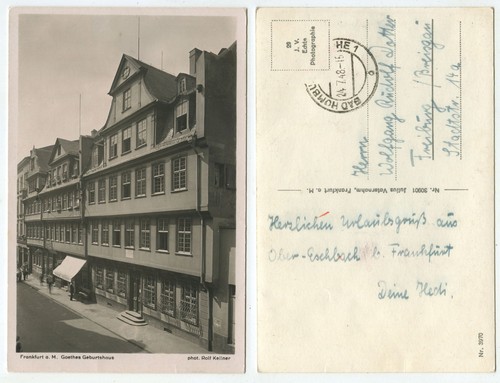 Frankfurt a. M. Goethes Geburtshaus
phot. Rolf Kellner
99
J. V.
Echte
Photographie
BAD HOMBU
HE 1
24.7.48-15
Herrn
Wolfgang Rudolf
Freiburg /Breisgau
Stadtstr. 14a
Nr. 30901 Julius Vaternahm, Frankfurt a. M.
Herzlichen Urlaubsgruß aus
Ober-Eschbach b. Frankfurt
Deine Hedi.
Nr. 3970